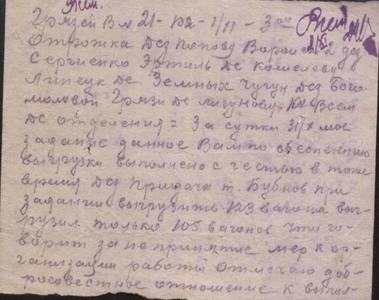 Грязей Вл 21- 122 - 1/XI - 3 00 Всем
Отрожка Дсз Попову Воронеж 2 дсз
Сергиенко Эртиль Дс Кошелеву
Липецк Дс Земных Чугун Дсз Бого-
моловой Грязи Дс Лизунову Всем
Дс отделения = За сутки 31/X мое
задание данное Вам по обеспечению
выгрузки выполнено с честью в тоже
время Дсз Придача т. Бубнов при
задании выгрузить 123 вагона выг-
рузил только 105 вагонов что го-
ворит за непринятие мер к ор-
ганизации работы Отмечаю доб-
росовестное отношение к выпол-